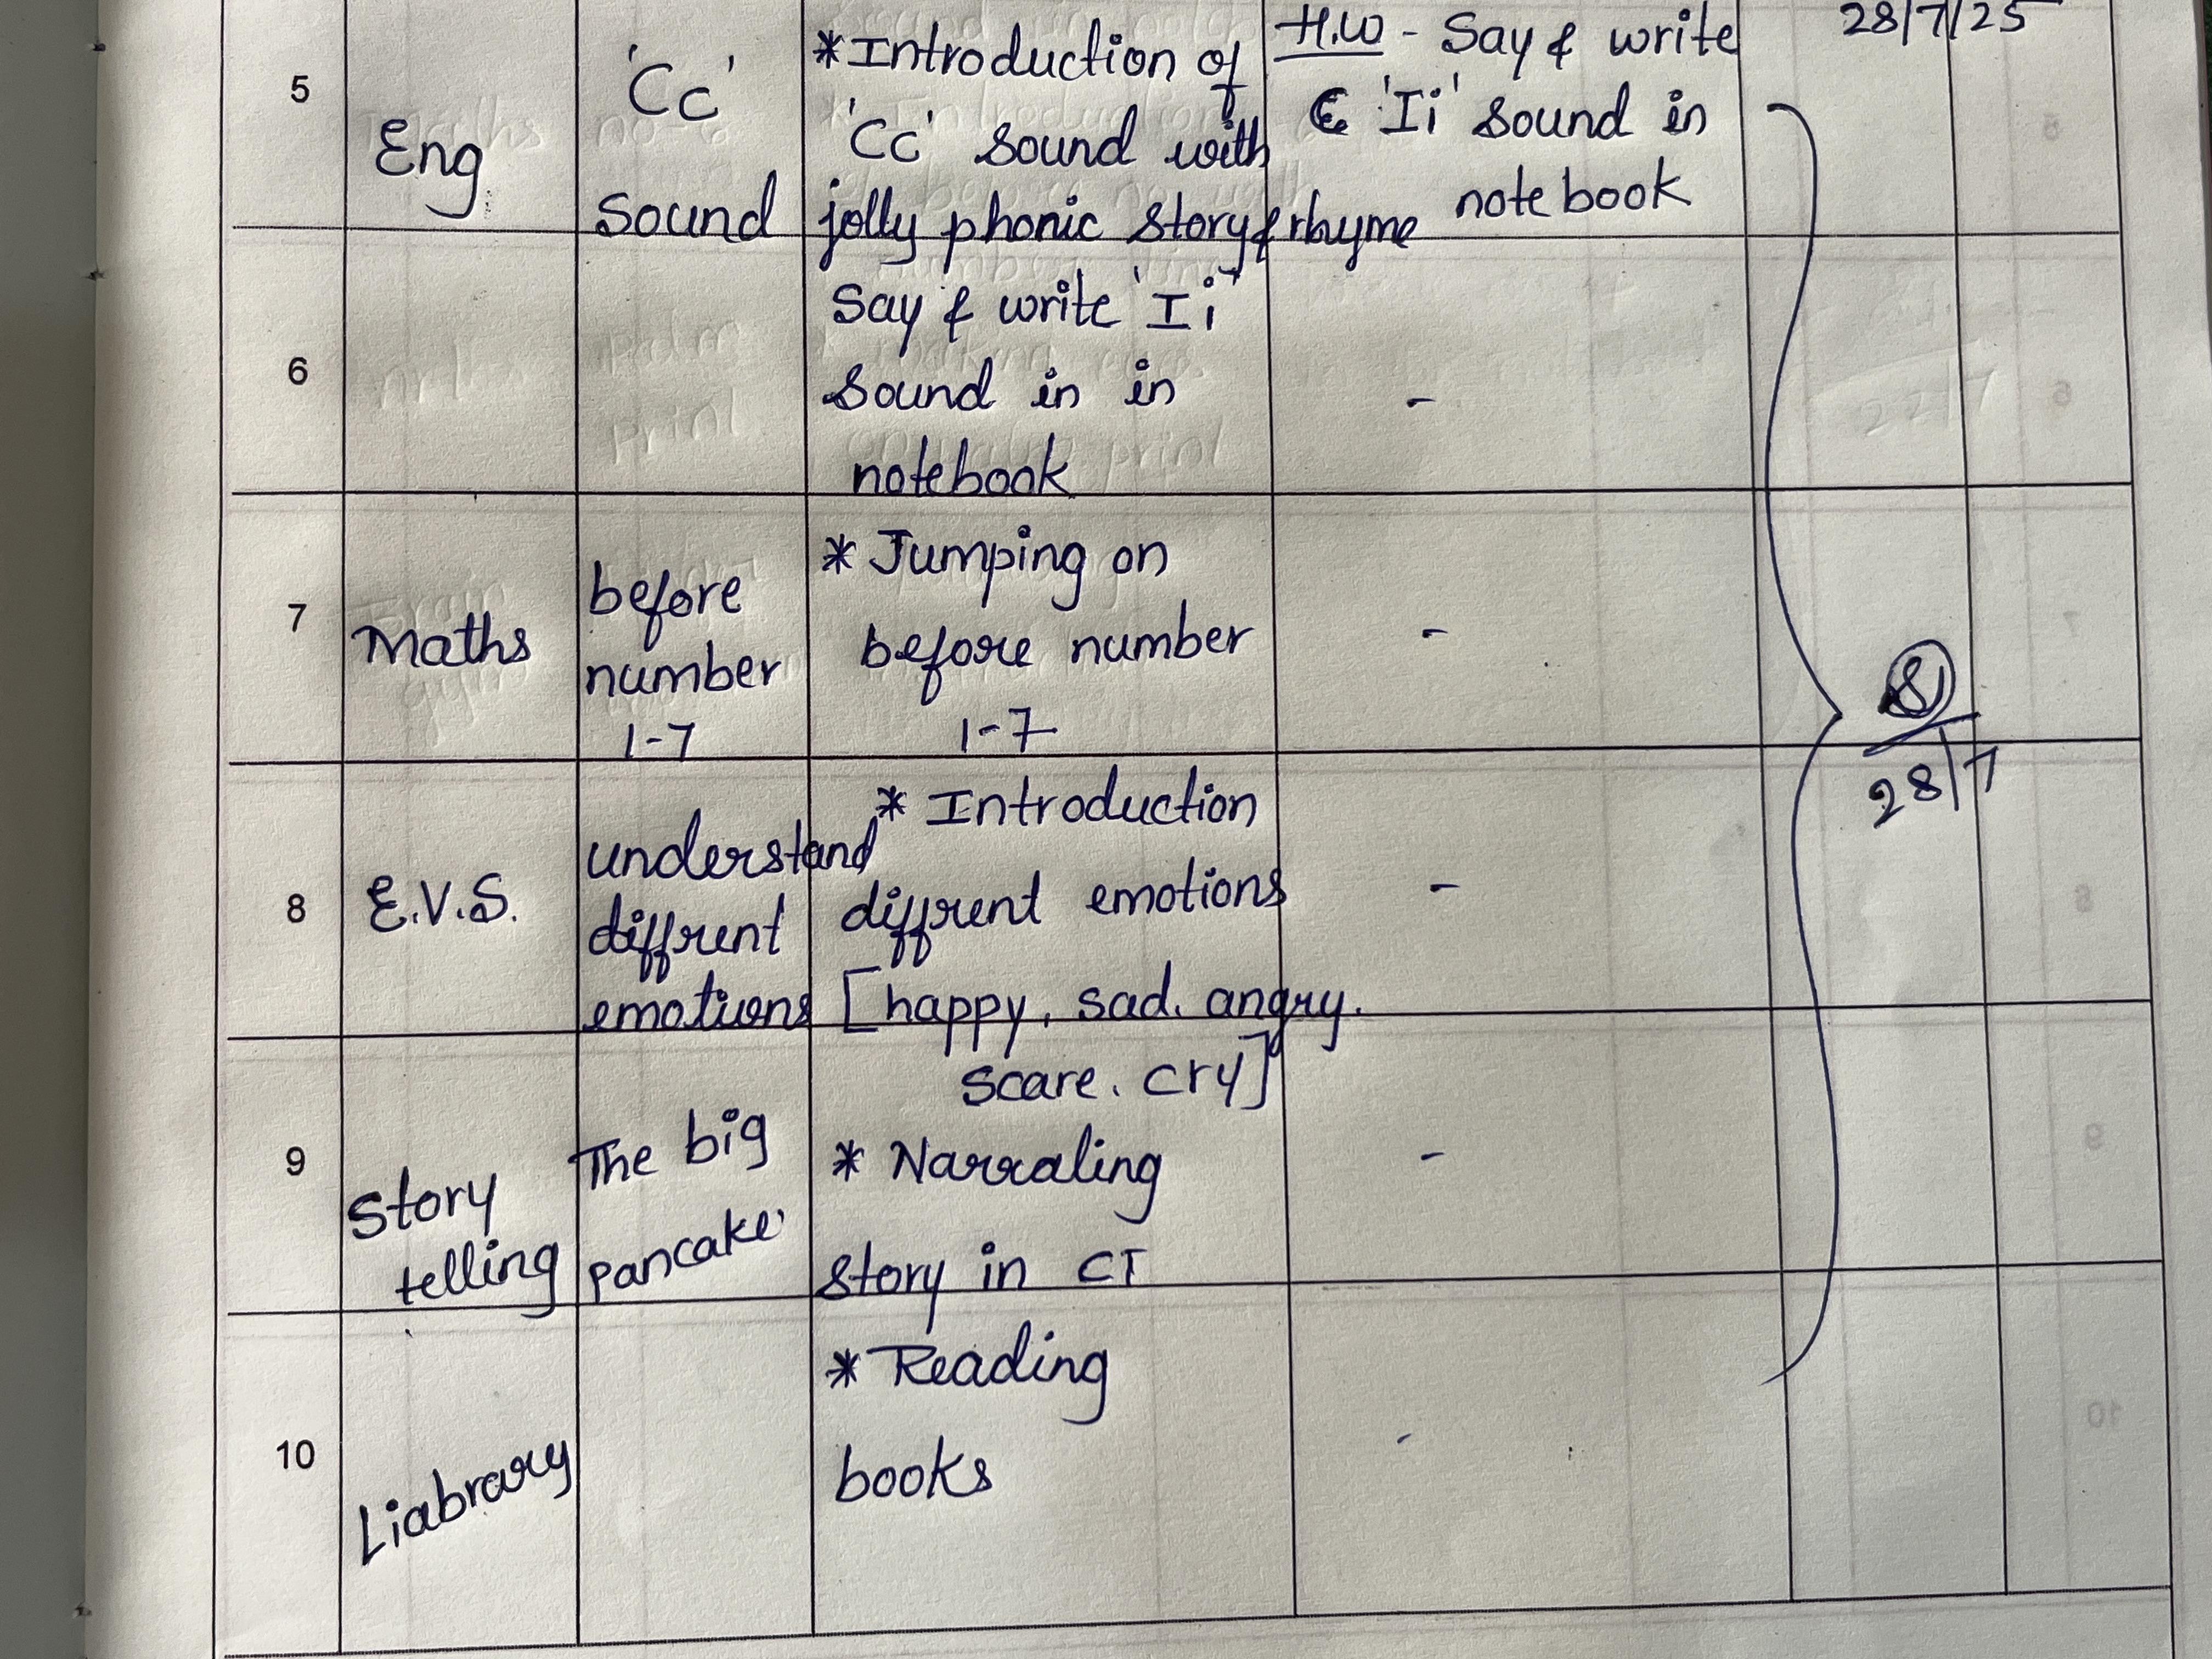 5
Eng
'Cc'
Sound
*Introduction of
'Cc' sound with
jolly phonic story & rhyme
H.W - Say & write
'Ii' sound in
notebook
28/7/25
6
Say & write 'Ii'
sound in in
notebook
-
7
Maths
before
number
1-7
* Jumping on
before number
1-7
-
28/7
8
E.V.S.
understand
diffrent
emotions
* Introduction
diffrent emotions
[happy, sad. angry.
scare. cry]
-
9
Story
telling
The big
pancake'
* Narraling
story in CT
-
10
Liabrary
* Reading
books
-